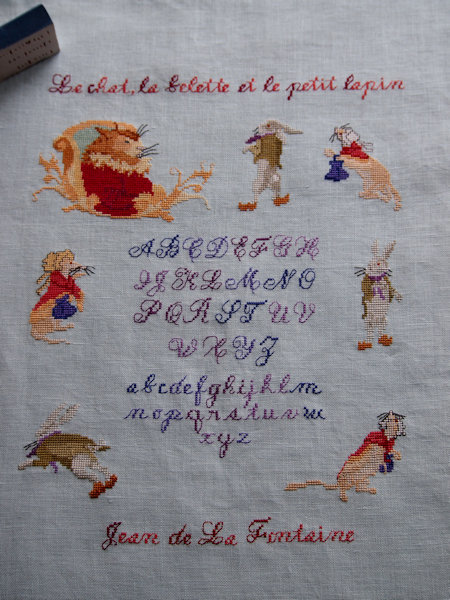 Le chat, la belette et le petit lapin
ABCDEFGH
IJKLMNO
PQRSTUV
WXYZ
abcdefghijklm
nopqrstuvw
xyz
Jean de La Fontaine